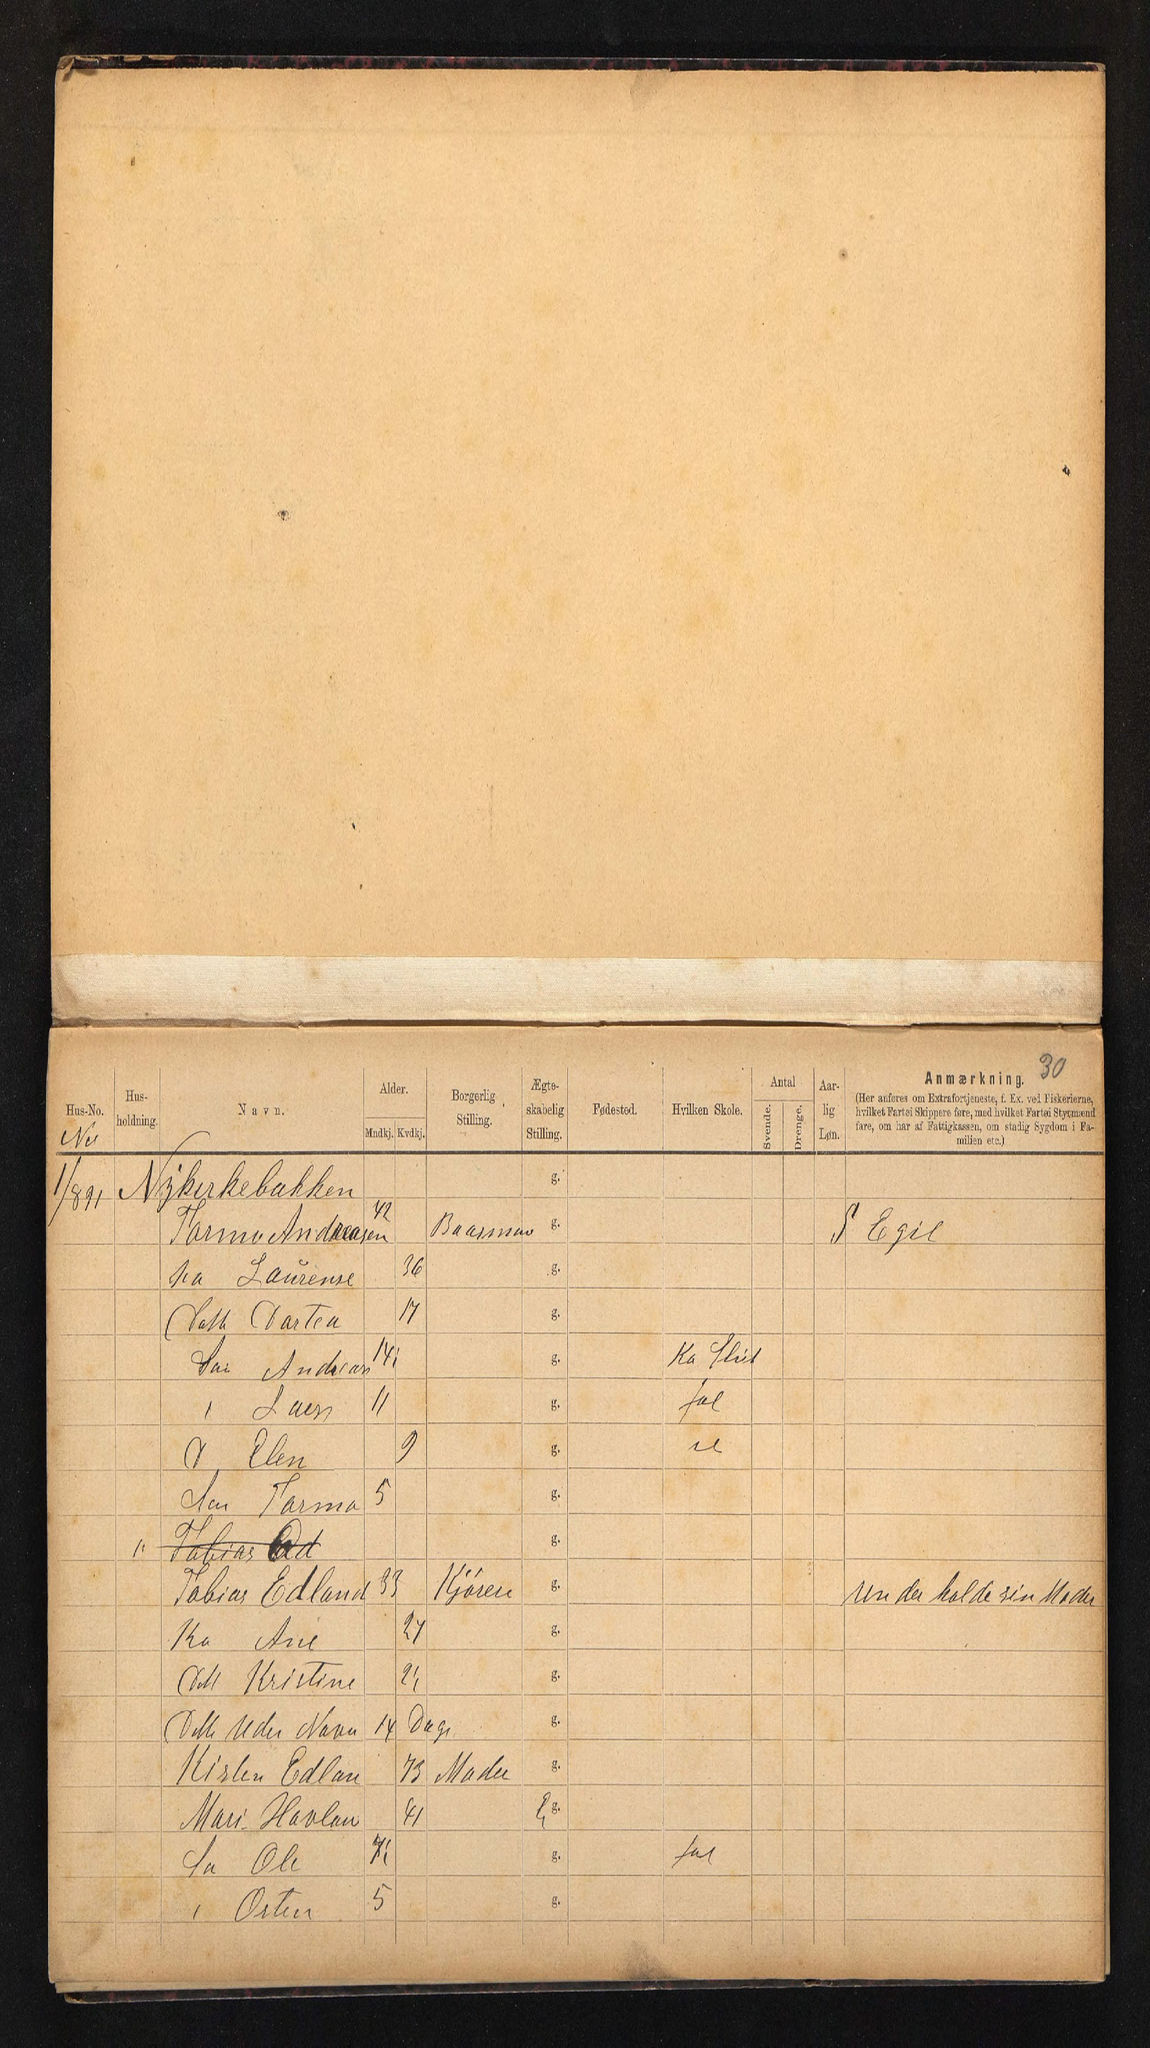 30
Hus-No. Hus-holdning. Navn. Alder. Mndkj. Kvdkj. Borgerlig Stilling. Ægte-skabelig Stilling. Fødested. Hvilken Skole. Antal Svende. Drenge. Aar-lig Løn. Anmærkning.
(Her anføres om Extrafortjeneste, f. Ex. ved Fiskerierne, hvilket Fartøi Skippere føre, med hvilket Fartøi Styrmænd fare, om har af Fattigkassen, om stadig Sygdom i Fa-milien etc.)
1/891 Nykirkebakken g.
Tormo Andreasen 42 Baasman g. S Egil
Ka Laurense 36 g.
Datt Dortea 17 g.
Søn Andreas 14½ g. Ka
" Lars 11 g. fol
D Elen 9 g.
Søn Tormo 5 g.
" Tobias Ed g.
Tobias Edland 33 Kjøren g. Un der holde sin Moder
Ka Ane 27 g.
Datt Kristine 2½ g.
Datt Uden Navn 14 Dage g.
Kisten Edlan 73 Moder g.
Mari Havlan 41 g.
Sø Ole 7½ g. fol
" Osten 5 g.